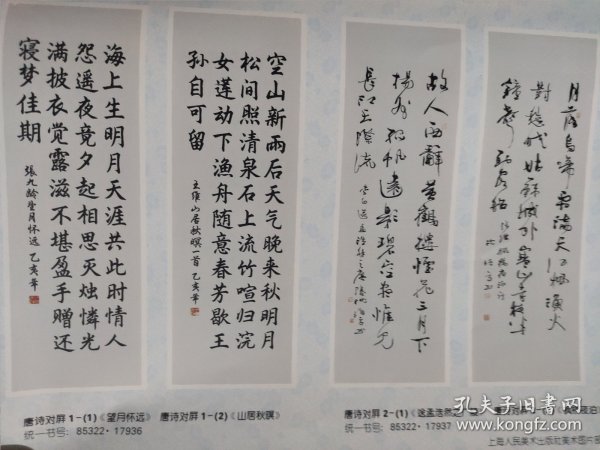 海上生明月天涯共此时情人
怨遥夜竟夕起相思灭烛怜光
满披衣觉露滋不堪盈手赠还
寝梦佳期
張九龄望月怀远 乙亥华
空山新雨后天气晚来秋明月
松间照清泉石上流竹喧归浣
女莲动下渔舟随意春芳歇王
孙自可留
王维山居秋暝一首 乙亥华
故人西辭黄鶴樓煙花三月下
揚州孤帆遠影碧空尽惟見
長江天際流
月落烏啼霜滿天江楓漁火
對愁眠姑蘇城外寒山寺夜半
鐘聲到客船
唐诗对屏 1-(1)《望月怀远》
统一书号：85322·17936
唐诗对屏 1-(2)《山居秋暝》
唐诗对屏 2-(1)《送孟浩然之
统一书号：85322·17937
夜泊
上海人民美术出版社美术图片部
孔夫子旧书网
www.kongfz.com